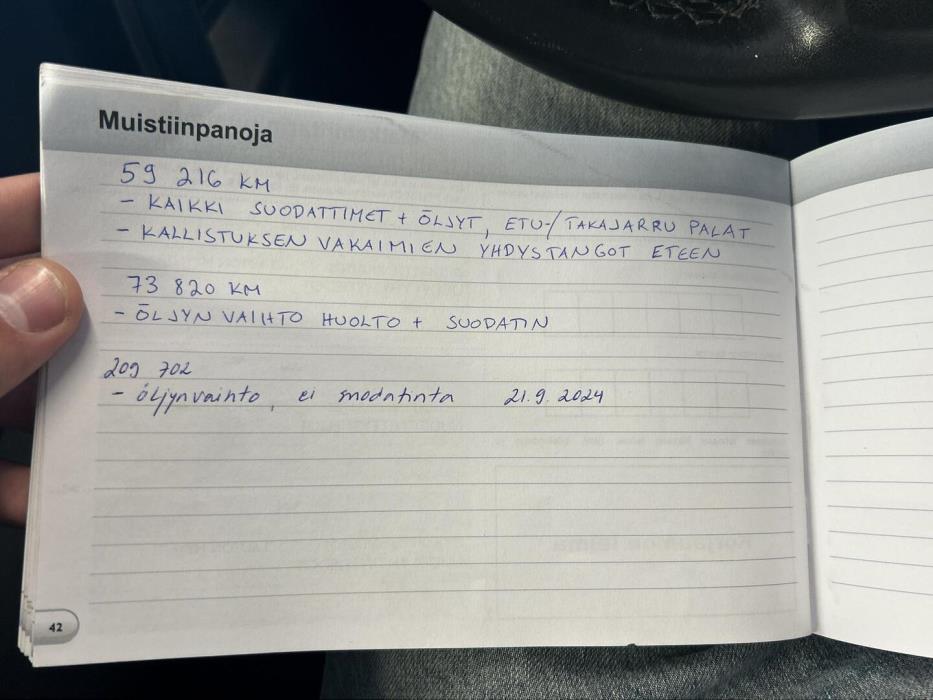 Muistiinpanoja
59 216 KM
- KAIKKI SUODATTIMET + ÖLJYT, ETU-/TAKAJARRU PALAT
- KALLISTUKSEN VAKAIMIEN YHDYSTANGOT ETEEN
73 820 KM
- ÖLJYN VAIHTO HUOLTO + SUODATIN
209 702
- öljynvaihto, ei suodatinta 21.9.2024
42